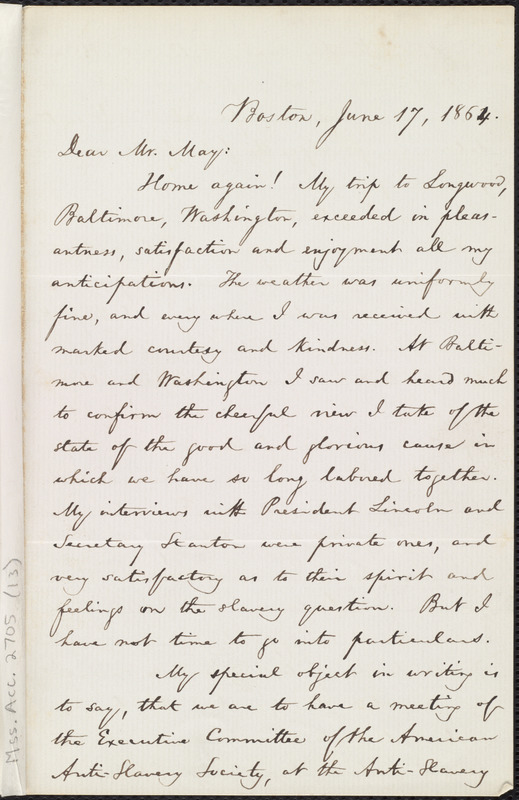 Boston, June 17, 1864.
Dear Mr. May:
Home again! My trip to Longwood,
Baltimore, Washington, exceeded in pleas-
antness, satisfaction and enjoyment all my
anticipations. The weather was uniformly
fine, and every where I was received with
marked courtesy and kindness. At Balti-
more and Washington I saw and heard much
to confirm the cheerful view I take of the
state of the good and glorious cause in
which we have so long labored together.
My interviews with President Lincoln and
Secretary Stanton were private ones, and
very satisfactory as to their spirit and
feelings on the slavery question. But I
have not time to go into particulars.
My special object in writing is
to say, that we are to have a meeting of
the Executive Committee of the American
Anti-Slavery Society, at the Anti-Slavery
Mss. Acc. 2705 (13)